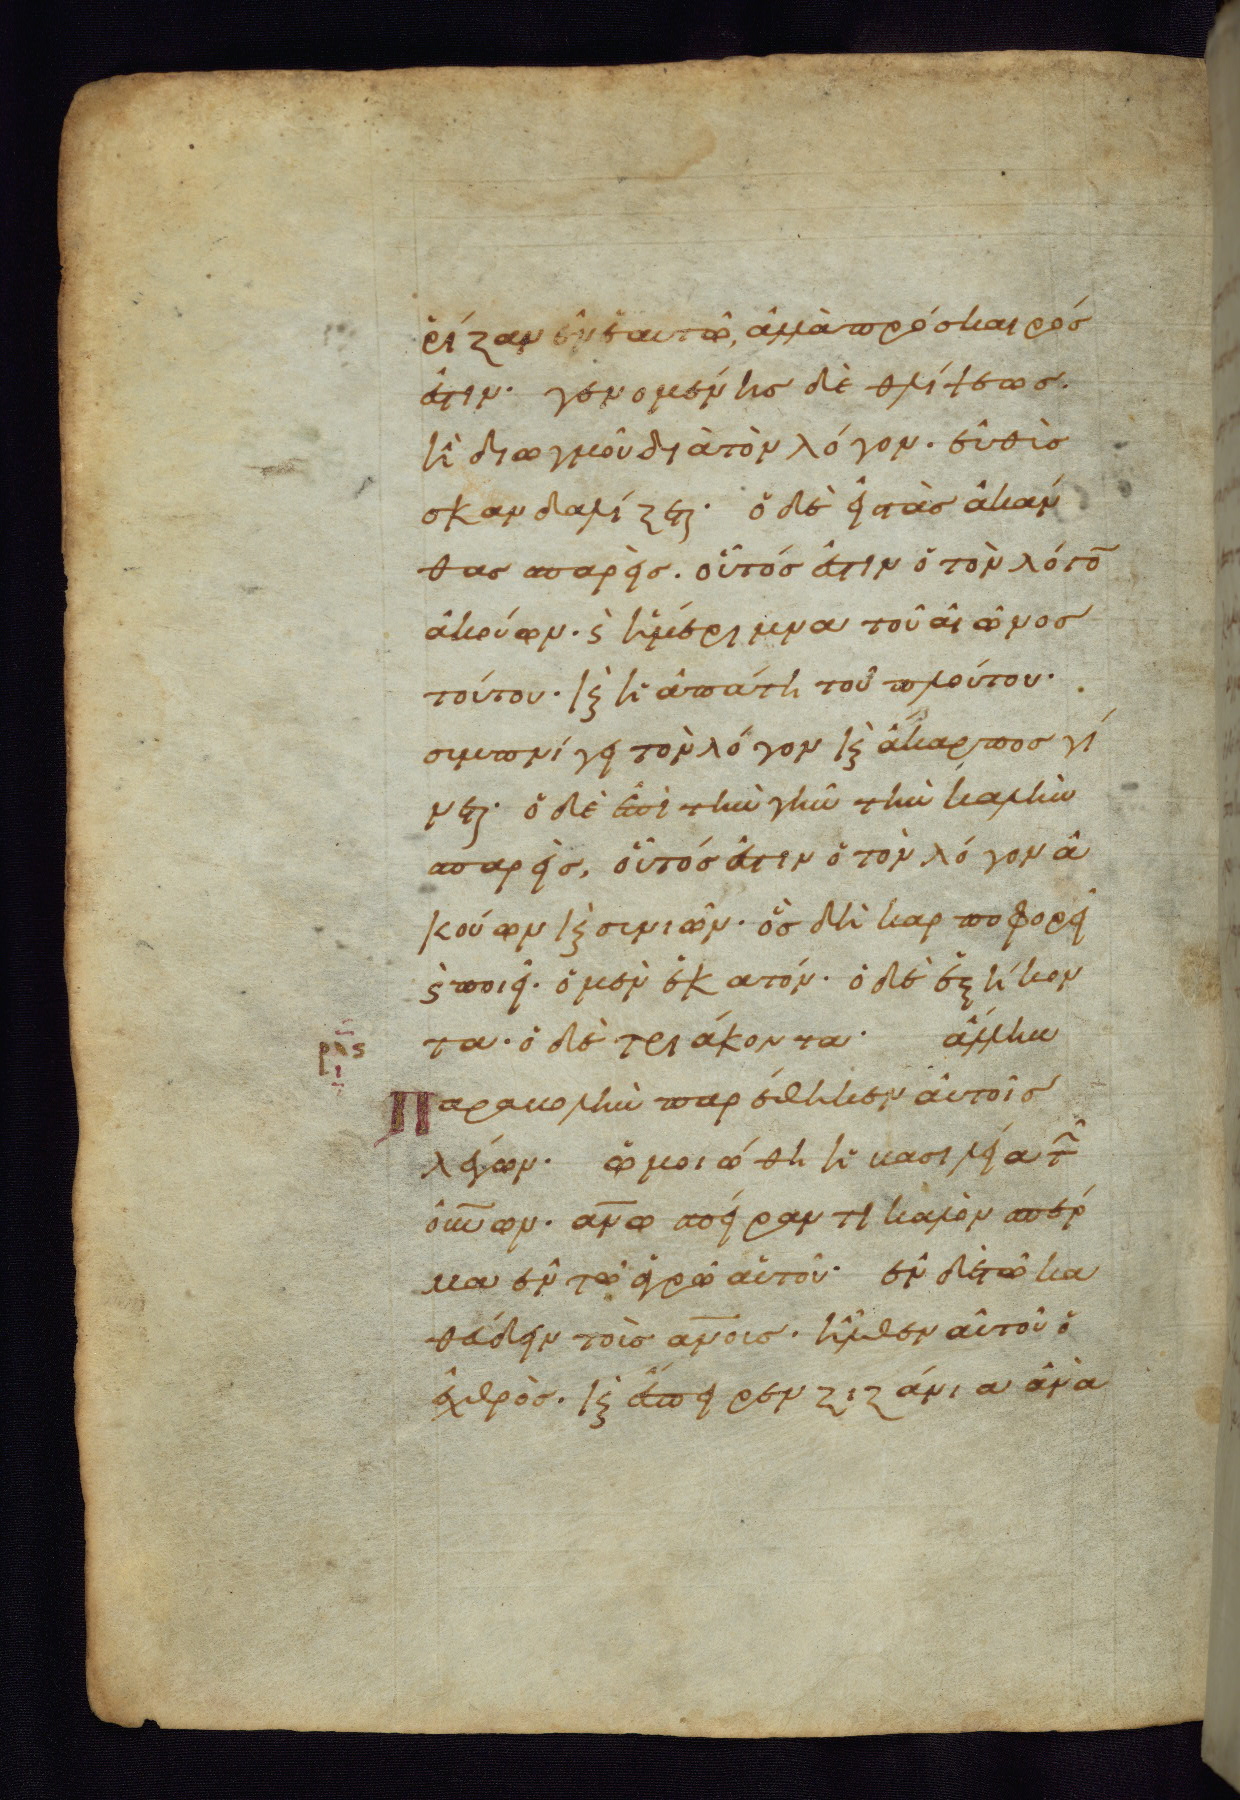 ῥίζαν ἐν ἑαυτῶ, ἀλλὰ πρόσκαιρός
ἐστιν· γενομένης δὲ θλίψεως.
ἢ διωγμοῦ διὰ τὸν λόγον. εὐθὺς
σκανδαλίζεται· ὁ δὲ εἰς τὰς ἀκάν
θας σπαρεὶς. οὗτός ἐστιν ὁ τὸν λόγο̅
ἀκούων. ϛ ἡ μέριμνα τοῦ αἰῶνος
τούτου. κ̀ ἡ ἀπάτη τοῦ πλούτου.
συμπνίγει τὸν λόγον κ̀ ἄκαρπος γί
νεται· ὁ δὲ ἐπὶ τὴν γῆν τὴν καλὴν
σπαρεὶς, οὗτός ἐστιν ὁ τὸν λόγον ἀ
κούων κ̀ συνιῶν. ὃς δὴ καρποφορεῖ
ϛ ποιεῖ. ὁ μὲν ἑκατόν. ὁ δὲ ἑξήκον
τα. ὁ δὲ τριάκοντα· ἄλλην
Παραβολὴν παρέθηκεν αὐτοῖς
λέγων· ὡμοιώθη ἡ βασιλεία τῶ̅
οὐ̅νων. ἀν̅ω σπείραντι καλὸν σπέρ
μα ἐν τῶ ἀγρῶ αὐτοῦ· ἐν δὲ τῶ κα
θεύδειν τοὺς αν̅ους. ἦλθεν αὐτοῦ ὁ
ἐχθρὸς. κ̀ ἔσπειρεν ζιζάνια ἀνὰ